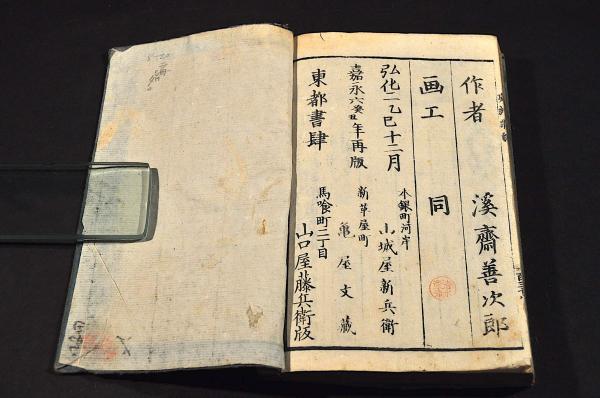 作者 溪齋善次郎
画工 同
弘化二乙巳十二月
嘉永六癸丑年再版
東都書肆
本銀町河岸
山城屋新兵衛
新革屋町
亀屋文藏
馬喰町二丁目
山口屋藤兵衛版